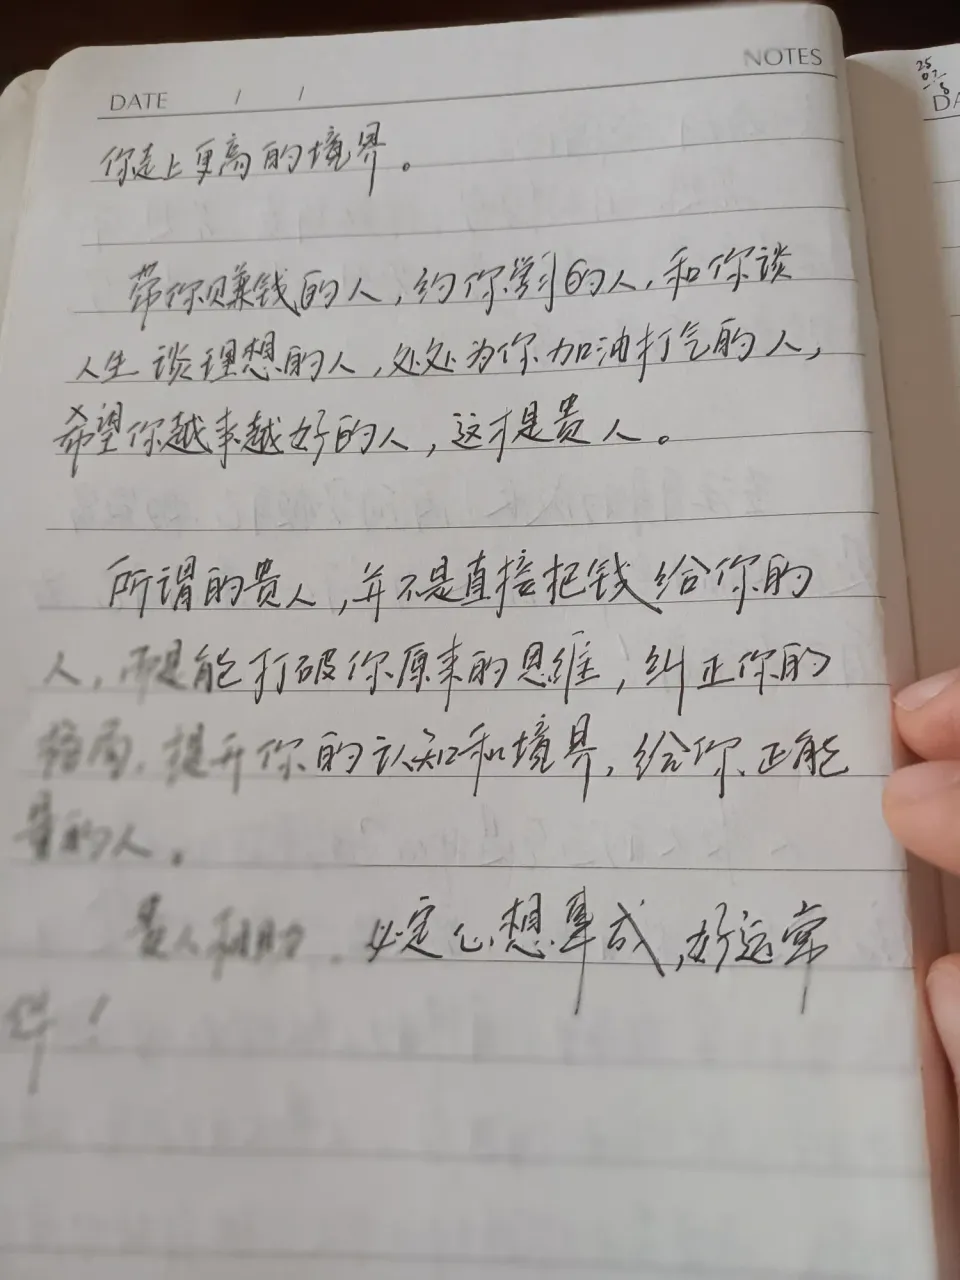 NOTES
DATE / /
你走上更高的境界。
带你赚钱的人,约你学习的人,和你谈
人生谈理想的人,处处为你加油打气的人,
希望你越来越好的人,这才是贵人。
所谓的贵人,并不是直接把钱给你的
人,而是能打破你原来的思维,纠正你的
格局,提升你的认知和境界,给你正能
量的人。
贵人相助,必定心想事成,好运常
伴!
25
02